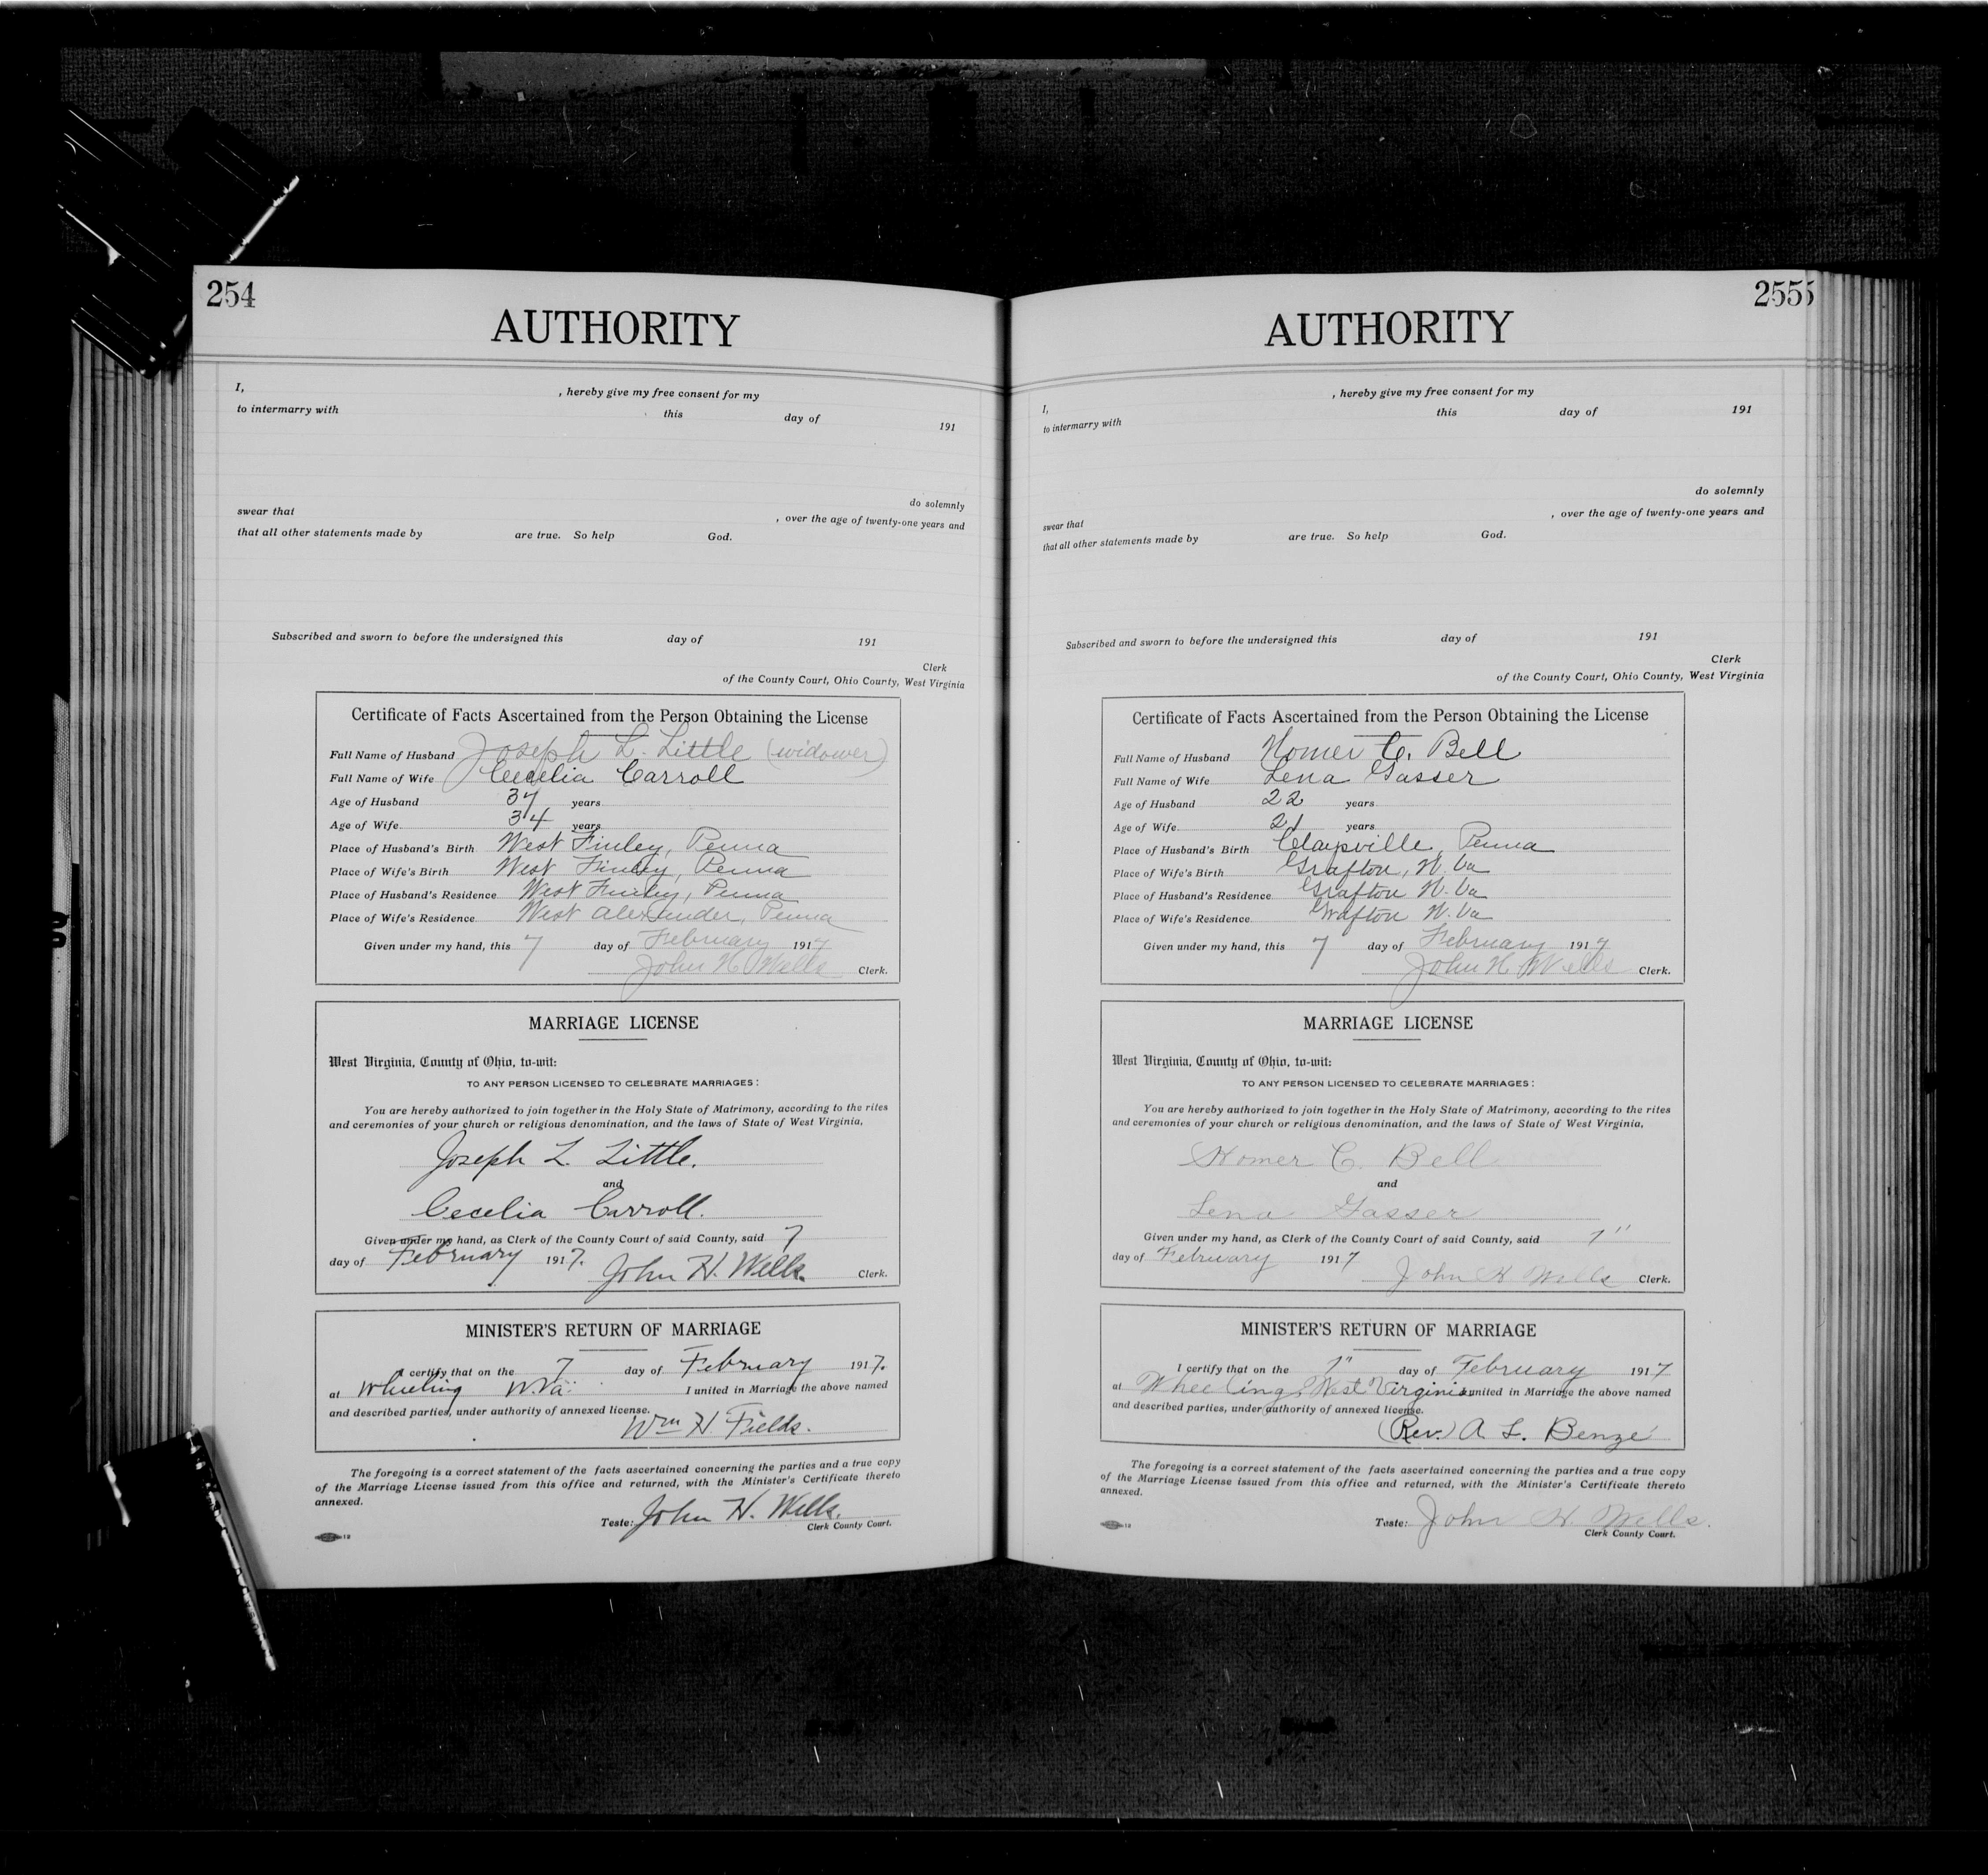 254
AUTHORITY
I, , hereby give my free consent for my
to intermarry with this day of 191
do solemnly
swear that , over the age of twenty-one years and
that all other statements made by are true. So help God.
Subscribed and sworn to before the undersigned this day of 191
Clerk
of the County Court, Ohio County, West Virginia
Certificate of Facts Ascertained from the Person Obtaining the License
Full Name of Husband Joseph L. Little (widower)
Full Name of Wife Cecelia Carroll
Age of Husband 37 years
Age of Wife 34 years
Place of Husband's Birth West Finley, Penna
Place of Wife's Birth West Finley, Penna
Place of Husband's Residence West Finley, Penna
Place of Wife's Residence West Alexander, Penna
Given under my hand, this 7 day of February 1917
John H Wells Clerk.
MARRIAGE LICENSE
West Virginia, County of Ohio, to-wit:
TO ANY PERSON LICENSED TO CELEBRATE MARRIAGES:
You are hereby authorized to join together in the Holy State of Matrimony, according to the rites
and ceremonies of your church or religious denomination, and the laws of State of West Virginia,
Joseph L. Little.
and
Cecelia Carroll.
Given under my hand, as Clerk of the County Court of said County, said 7
day of February 1917. John H. Wells. Clerk.
MINISTER'S RETURN OF MARRIAGE
I certify that on the 7 day of February 1917.
at Wheeling W.Va. I united in Marriage the above named
and described parties, under authority of annexed license.
Wm H. Fields.
The foregoing is a correct statement of the facts ascertained concerning the parties and a true copy
of the Marriage License issued from this office and returned, with the Minister's Certificate thereto
annexed.
Teste: John H. Wells.
Clerk County Court.
12
255
AUTHORITY
I, , hereby give my free consent for my
to intermarry with this day of 191
do solemnly
swear that , over the age of twenty-one years and
that all other statements made by are true. So help God.
Subscribed and sworn to before the undersigned this day of 191
Clerk
of the County Court, Ohio County, West Virginia
Certificate of Facts Ascertained from the Person Obtaining the License
Full Name of Husband Homer C. Bell
Full Name of Wife Lena Gasser
Age of Husband 22 years
Age of Wife 21 years
Place of Husband's Birth Claysville, Penna
Place of Wife's Birth Grafton, W. Va
Place of Husband's Residence Grafton W. Va
Place of Wife's Residence Grafton W. Va
Given under my hand, this 7 day of February 1917
John H Wells Clerk.
MARRIAGE LICENSE
West Virginia, County of Ohio, to-wit:
TO ANY PERSON LICENSED TO CELEBRATE MARRIAGES:
You are hereby authorized to join together in the Holy State of Matrimony, according to the rites
and ceremonies of your church or religious denomination, and the laws of State of West Virginia,
Homer C. Bell
and
Lena Gasser
Given under my hand, as Clerk of the County Court of said County, said 7"
day of February 1917 John H Wells Clerk.
MINISTER'S RETURN OF MARRIAGE
I certify that on the 7" day of February 1917
at Wheeling, West Virginia I united in Marriage the above named
and described parties, under authority of annexed license.
(Rev.) A. L. Benze
The foregoing is a correct statement of the facts ascertained concerning the parties and a true copy
of the Marriage License issued from this office and returned, with the Minister's Certificate thereto
annexed.
Teste: John H Wells.
Clerk County Court.
12